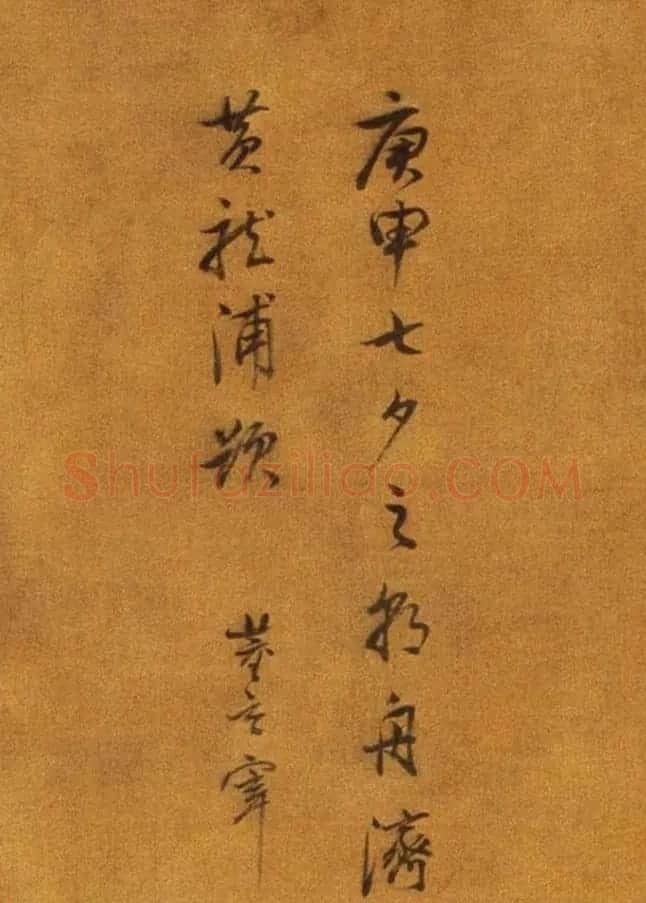 庚申七夕之朝舟濟
黄龍浦題
董玄宰
Shufaziliao.COM